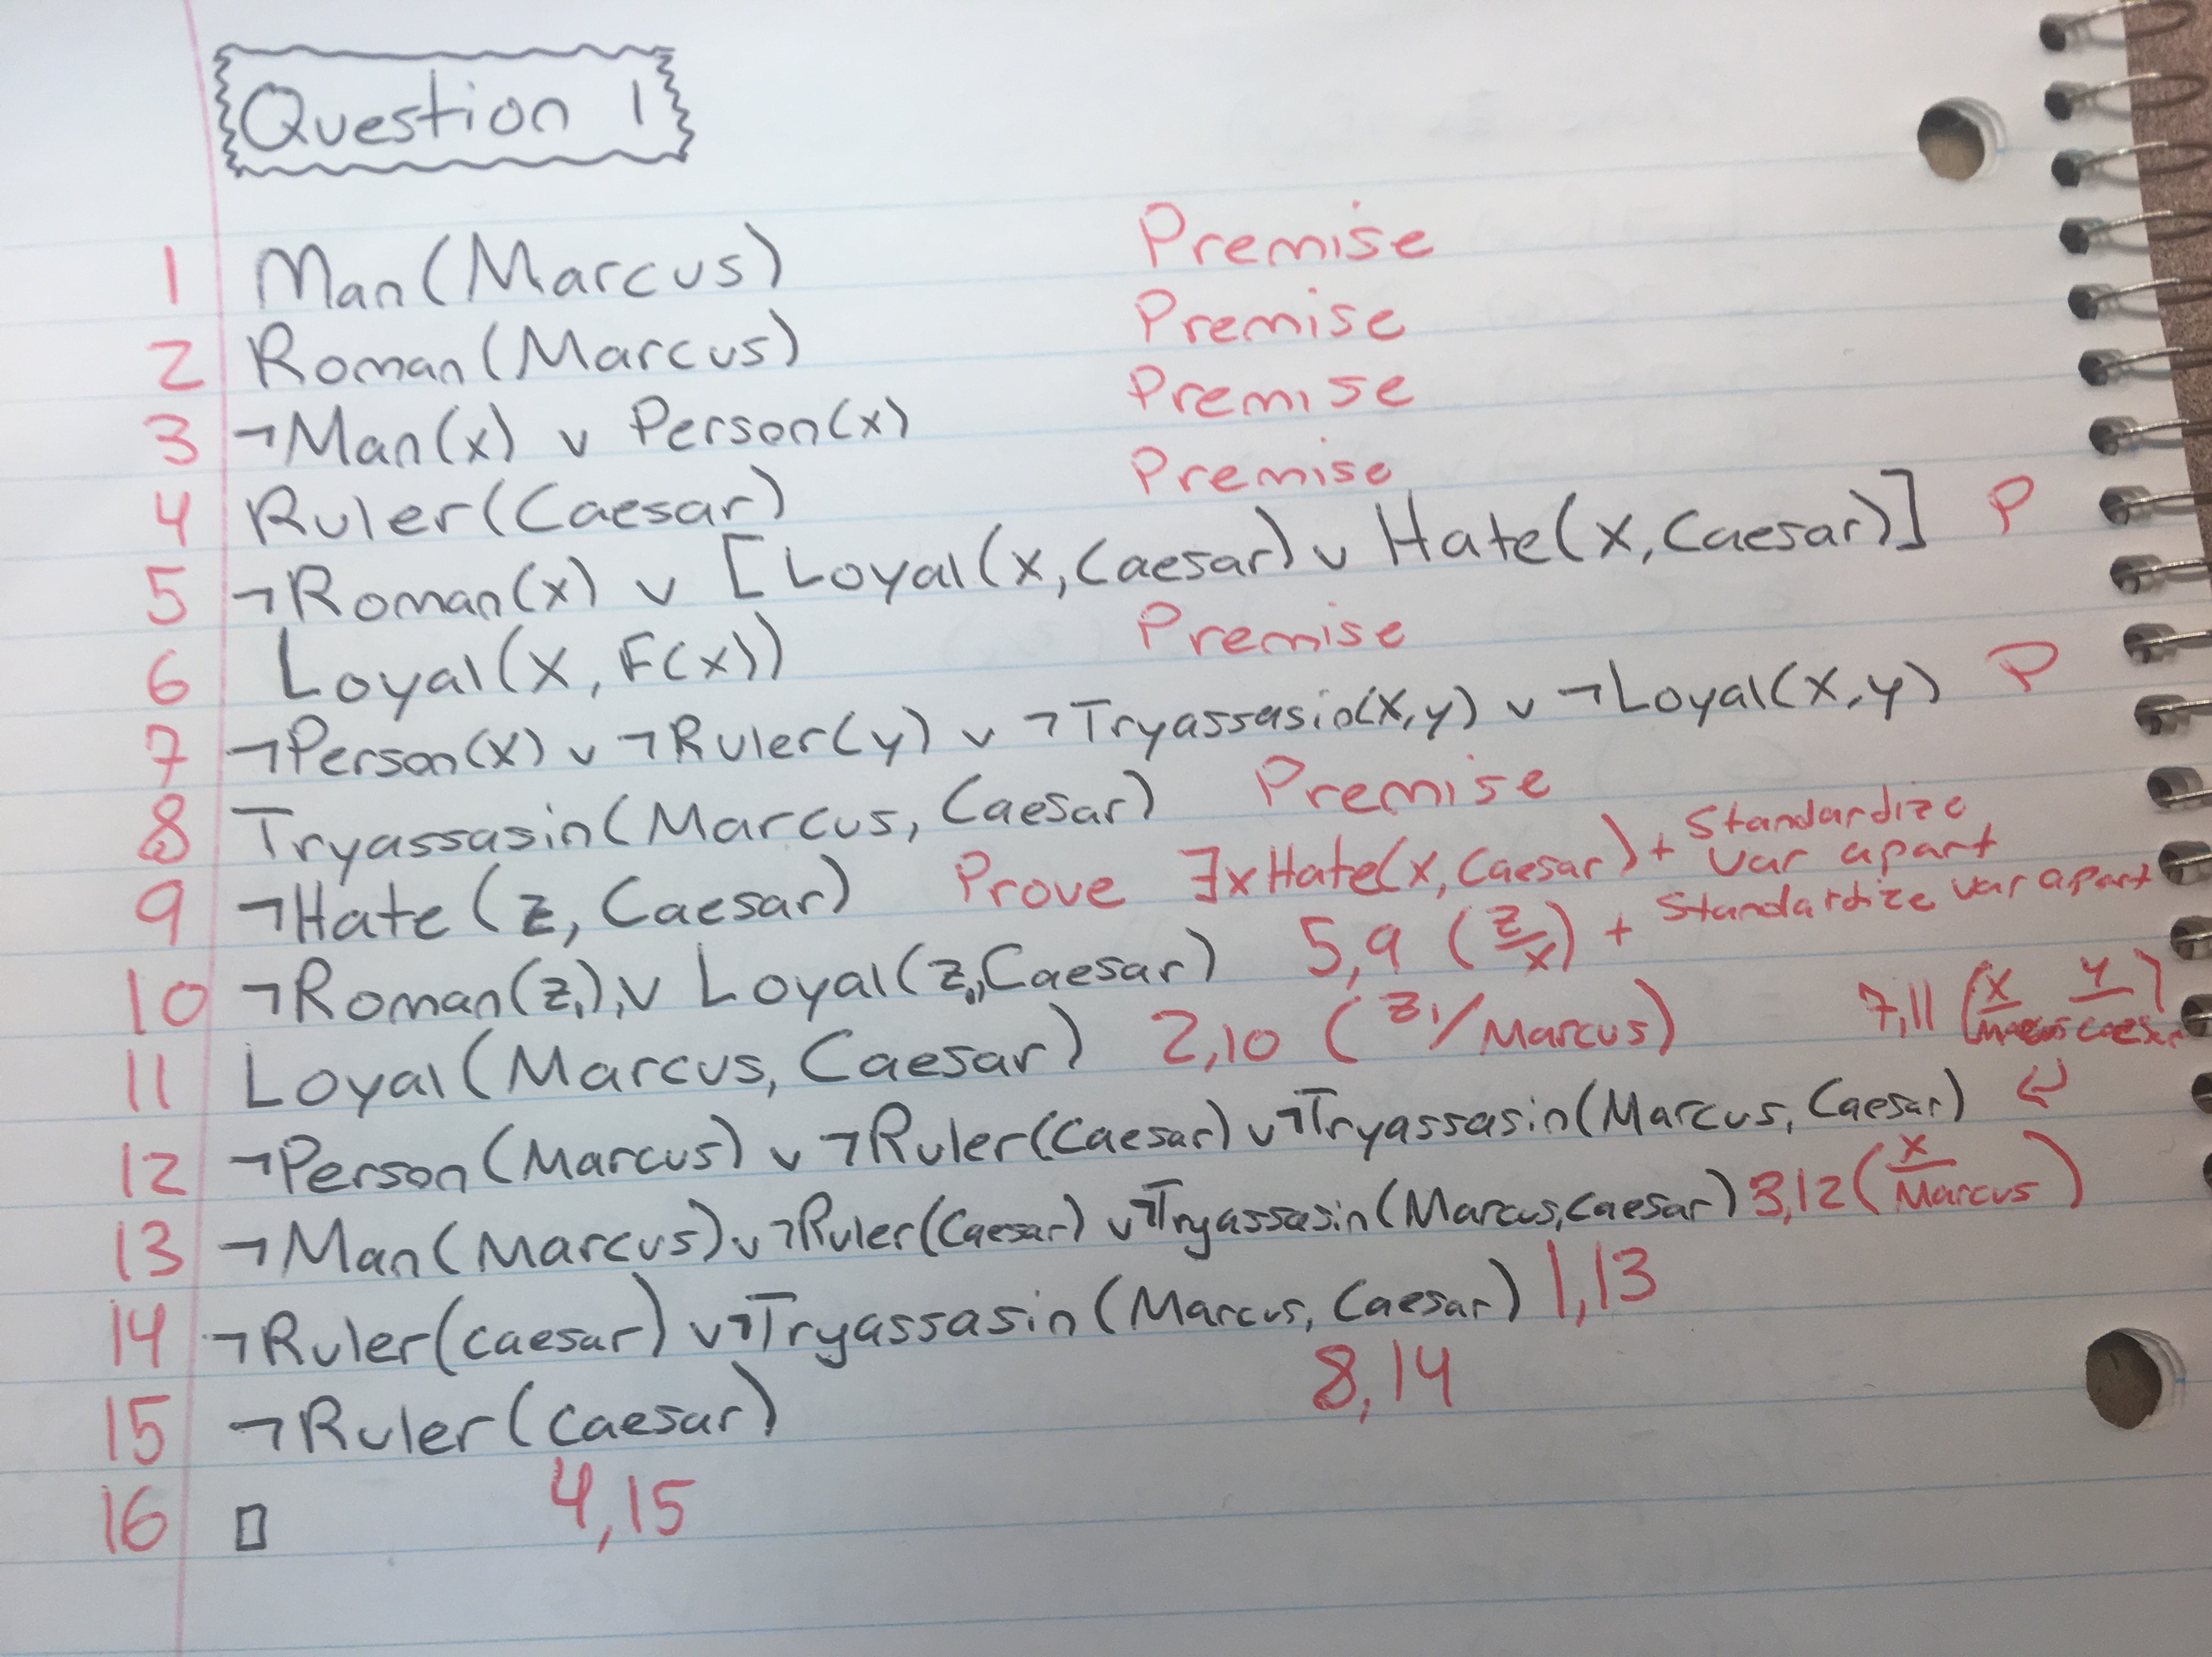 Question 1
1 Man(Marcus) Premise
2 Roman(Marcus) Premise
3 ¬Man(x) ∨ Person(x) Premise
4 Ruler(Caesar) Premise
5 ¬Roman(x) ∨ [Loyal(x,Caesar) ∨ Hate(x,Caesar)] P
6 Loyal(x, F(x)) Premise
7 ¬Person(x) ∨ ¬Ruler(y) ∨ ¬Tryassasin(x,y) ∨ ¬Loyal(x,y) P
8 Tryassasin(Marcus, Caesar) Premise
9 ¬Hate(z, Caesar) Prove ∃xHate(x,Caesar) + Standardize var apart
10 ¬Roman(z₁) ∨ Loyal(z₁,Caesar) 5,9 (z/x) + Standardize var apart
11 Loyal(Marcus, Caesar) 2,10 (z₁/Marcus) 7,11 (x/Marcus y/Caesar)
12 ¬Person(Marcus) ∨ ¬Ruler(Caesar) ∨ ¬Tryassasin(Marcus, Caesar) ↵
13 ¬Man(Marcus) ∨ ¬Ruler(Caesar) ∨ ¬Tryassasin(Marcus,Caesar) 3,12 (x/Marcus)
14 ¬Ruler(caesar) ∨ ¬Tryassasin(Marcus, Caesar) 1,13
15 ¬Ruler(caesar) 8,14
16 □ 4,15